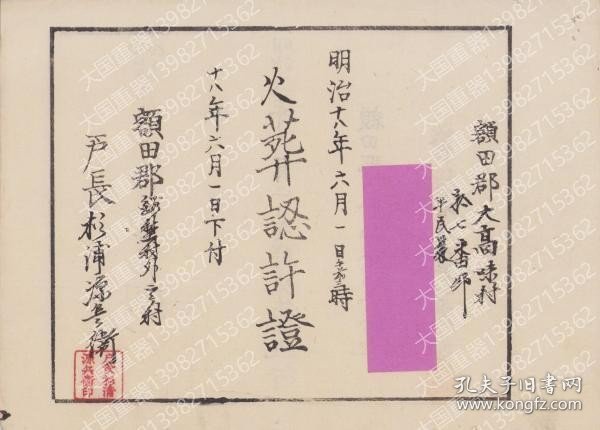 額田郡大高味村
拾七番邸
平民
明治十八年六月一日 時
火葬認許證
十八年六月一日下付
額田郡 村外 村
戸長杉浦源兵衛
大国重器13982715362
孔夫子旧书网
www.kongfz.com